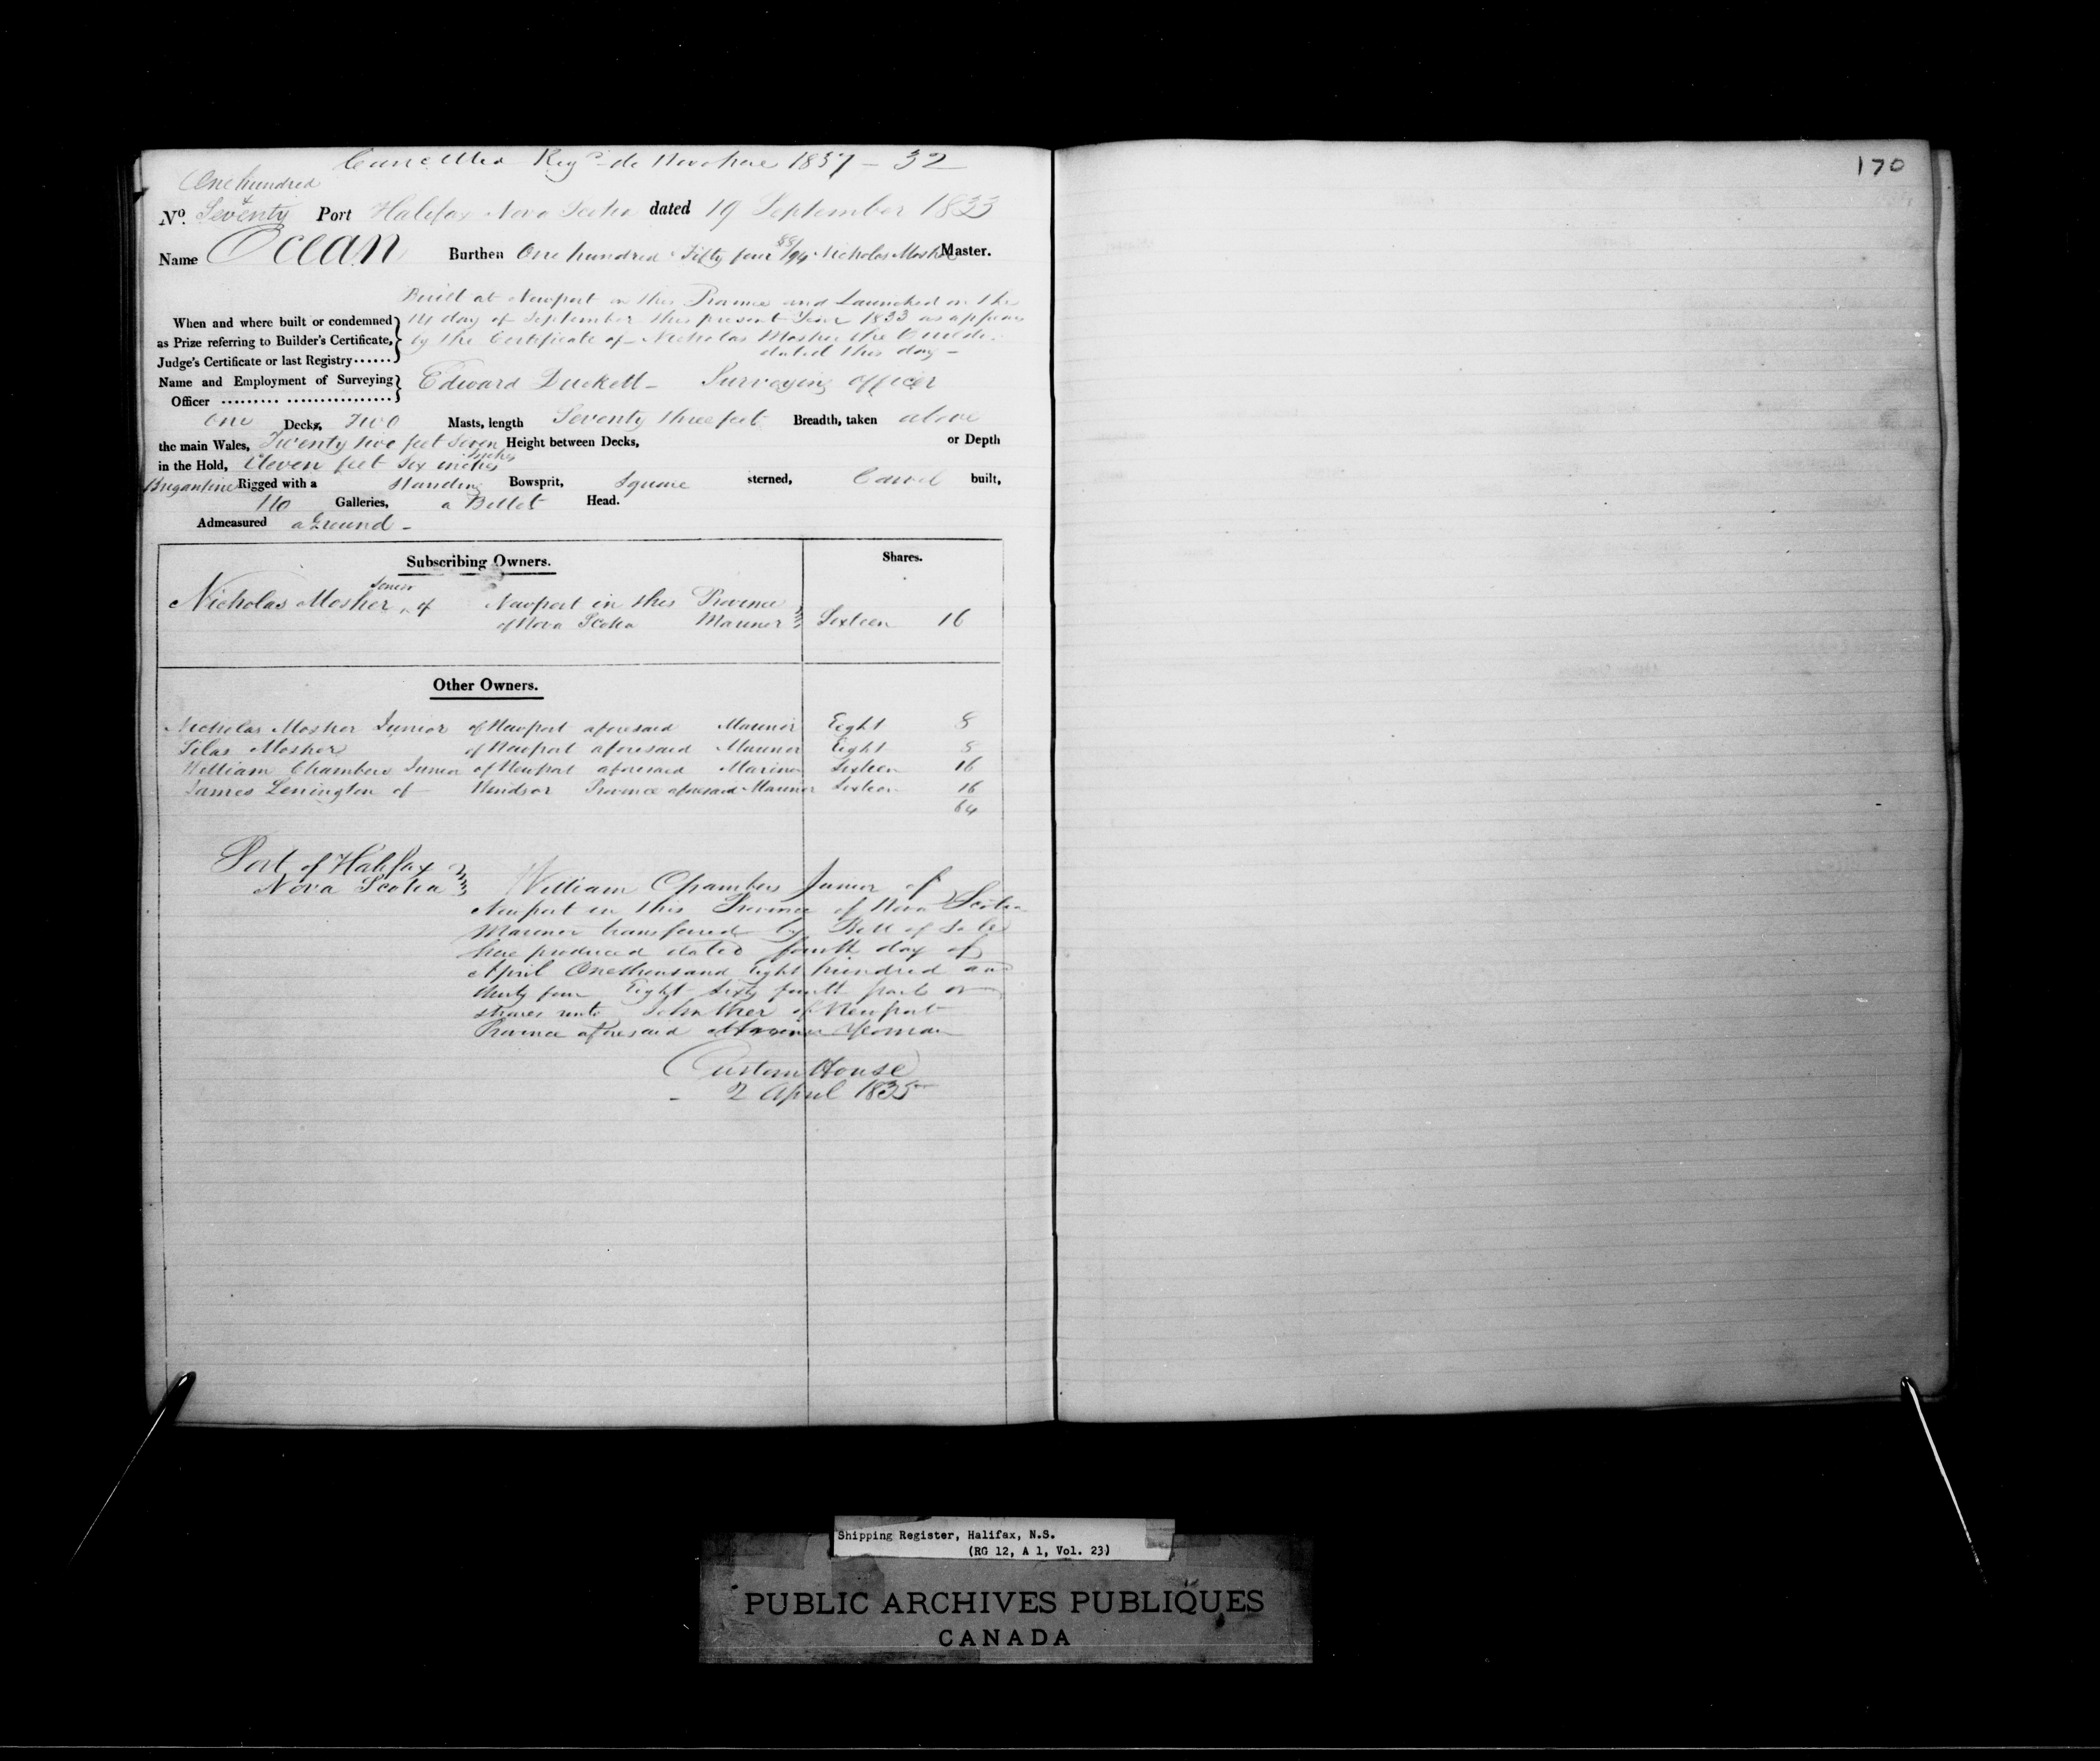 Cancelled Reg^d de Novo here 1837 – 32
170
One hundred
&
No. Seventy Port Halifax Nova Scotia dated 19 September 1833
Name Ocean Burthen One hundred Fifty four 88/94 Nicholas Mosher Master.
Built at Newport in this Province and Launched on the
When and where built or condemned day of September this present Year 1833 as appears
as Prize referring to Builder's Certificate, by the Certificate of Nicholas Mosher the Builder
Judge's Certificate or last Registry...... dated this day –
Name and Employment of Surveying Edward Duckett – Surveying officer
Officer ......... ................
One Decks, Two Masts, length Seventy three feet Breadth, taken above
the main Wales, Twenty two feet Seven Height between Decks, or Depth
inches
in the Hold, Eleven feet Six inches
Brigantine Rigged with a Standing Bowsprit, Square sterned, Carvel built,
No Galleries, a Billet Head.
Admeasured a Ground –
Subscribing Owners. Shares.
Senior
Nicholas Mosher ^ of Newport in this Province
of Nova Scotia Mariner Sixteen 16
Other Owners.
Nicholas Mosher Junior of Newport aforesaid Mariner Eight 8
Silas Mosher of Newport aforesaid Mariner Eight 8
William Chambers Junior of Newport aforesaid Mariner Sixteen 16
James Lenington of Windsor Province aforesaid Mariner Sixteen 16
64
Port of Halifax
Nova Scotia William Chambers Junior of
Newport in this Province of Nova Scotia
Mariner transferred by Bill of Sale
here produced dated fourth day of
April One thousand Eight hundred and
thirty four Eight Sixty fourth parts or
shares unto of Newport
Province aforesaid Mariner Yeoman
Custom House
2 April 1835
Shipping Register, Halifax, N.S.
(RG 12, A 1, Vol. 23)
PUBLIC ARCHIVES PUBLIQUES
CANADA